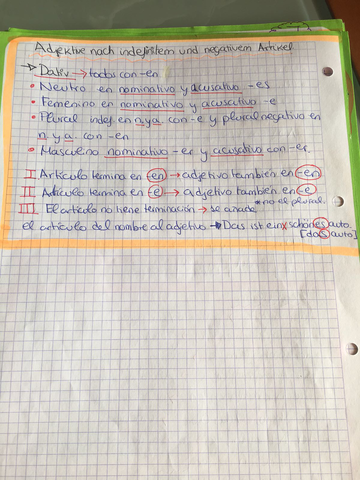 Adjektive nach indefinitem und negativem Artikel
→ Dativ → todos con -en
• Neutro en nominativo y acusativo -es
• Femenino en nominativo y acusativo -e
• Plural indef. en n y a con -e y plural negativo en
n y a. con -en
• Masculino nominativo -er y acusativo con -er.
I Artículo termina en -en → adjetivo también en -en
II Artículo termina en -e → adjetivo también en -e
*no el plural
III El artículo no tiene terminación → se añade
el artículo del nombre al adjetivo → Das ist ein schönes auto
[das auto]